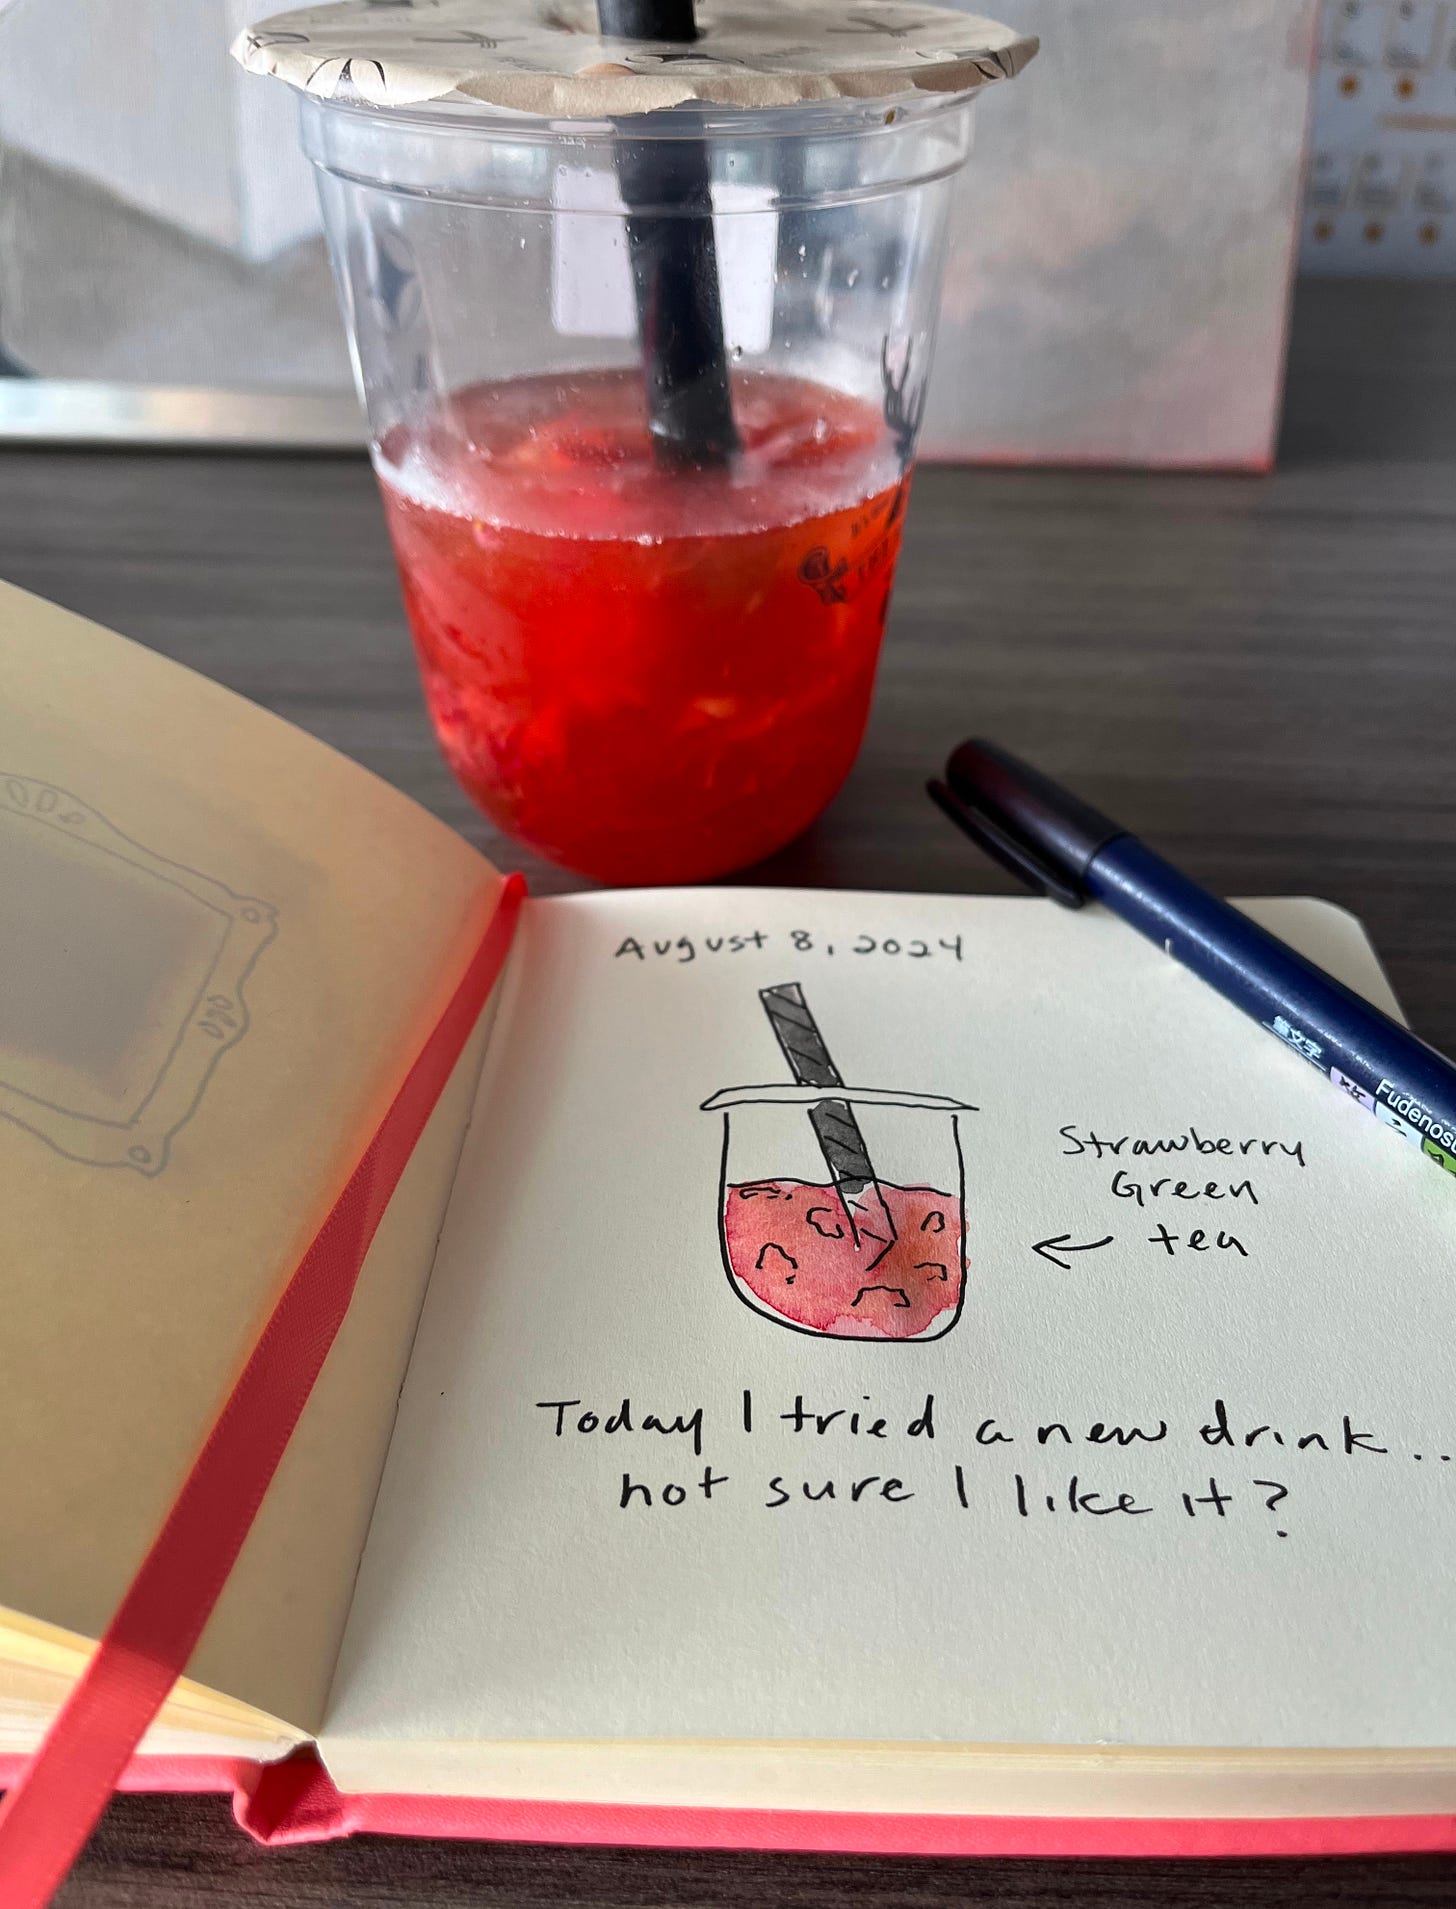 August 8, 2024
Strawberry
Green
tea
Today I tried a new drink..
not sure I like it?
筆文字
Fudenosu